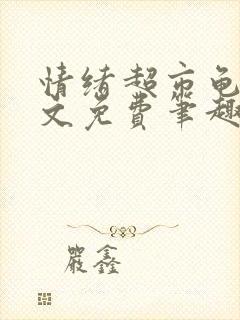 情绪超市龟
文免费笔趣
嚴鑫